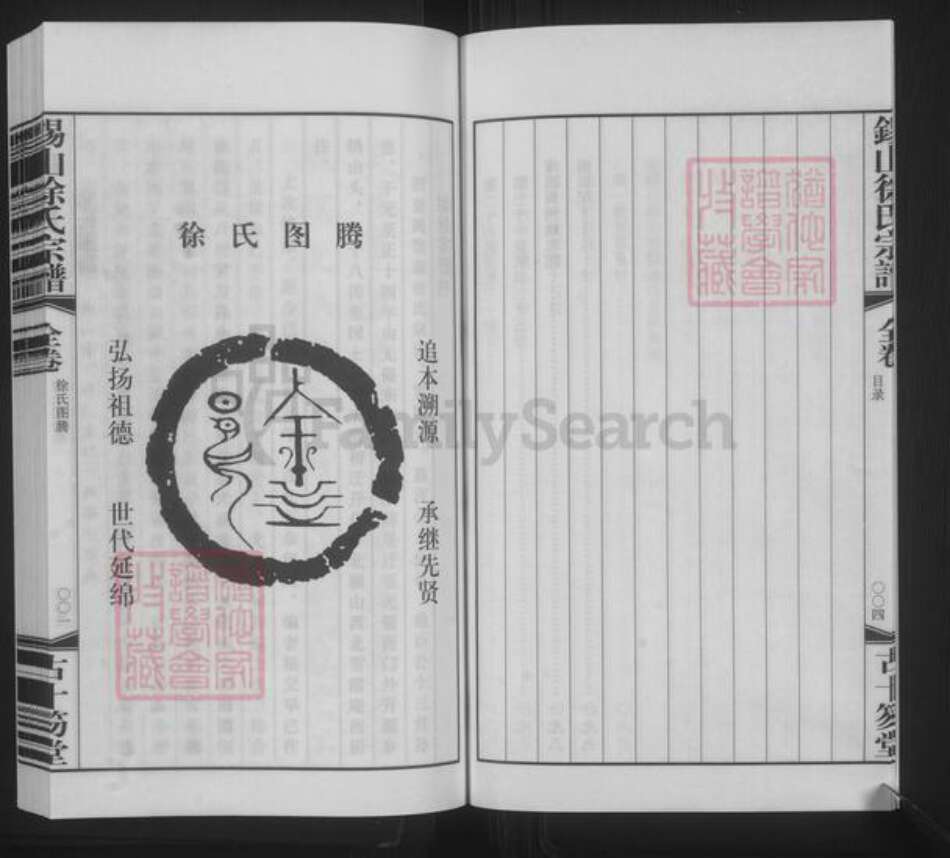 錫山徐氏宗譜
全卷
目录
〇〇四
古十笏堂
收藏
譜學會
徐氏图腾
追本溯源 承继先贤
弘扬祖德 世代延绵
FamilySearch
收藏
譜學會
錫山徐氏宗譜
全卷
徐氏图腾
古十笏堂